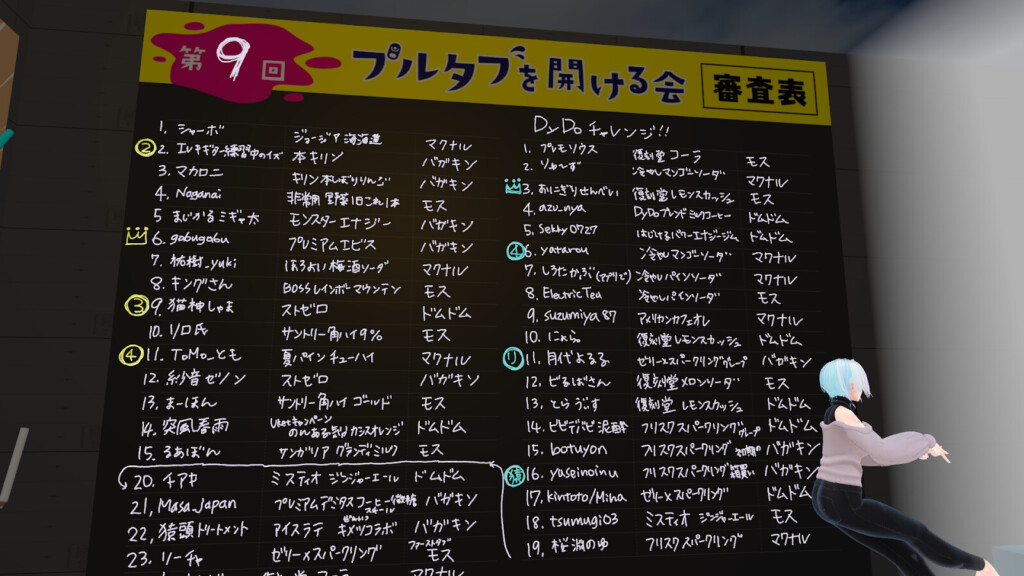 第9回 プルタブを開ける会 審査表
1. シャーボ ジョージア 海海道 マクナル
② 2. エレキギター練習中のイズ 本キリン バガキン
3. マカロニ キリン 本しぼりりんご バガキン
4. Naganai 非常用 野菜1日これ1本 モス
5 まじかるミギャ太 モンスターエナジー バガキン
6. gobugobu プレミアムエビス バガキン
7. 祐樹_yuki ほろよい 梅酒ソーダ マクナル
8. キングさん BOSSレインボーマウンテン モス
③ 9. 猫神しゃま ストゼロ ドムドム
10. リロ氏 サントリー角ハイ9% モス
④ 11. ToMo_とも 夏パインチューハイ マクナル
12. 紗音ゼノン ストゼロ バガキン
13. まーぽん サントリー角ハイゴールド モス
14. 突風春雨 のんある気分 カシスオレンジ ドムドム
15. るあぽん サンガリア グランディミルク モス
20. チアキ ミスティオ ジンジャーエール ドムドム
21, Masa_Japan プレミアムデミタスコーヒー微糖 バガキン
22, 猿頭トリートメント アイスラテ キメツコラボ バガキン
23. リーチャ ゼリー×スパークリング ファーストタブ モス
DyDoチャレンジ!!
1. プレモノウス 復刻堂コーラ モス
2. ソルーず 冷やしマンゴーソーダ マクナル
3. おにぎりせんべい 復刻堂レモンスカッシュ モス
4. azu_nya DyDoブレンドミルクコーヒー ドムドム
5. sekky0727 はじけるパワーエナジージム ドムドム
④ 6. yatarou 冷やしマンゴーソーダ マクナル
7. しろたかぶ(マグリで) 冷やしパインソーダ マクナル
8. ElectricTea 冷やしパインソーダ モス
9. suzumiya87 アメリカンカフェオレ マクナル
10. にゃら 復刻堂レモンスカッシュ ドムドム
⑪ 11. 月代よるる ゼリー×スパークリンググレープ バガキン
12. ビるばさん 復刻堂メロンソーダ モス
13. とらうぃす 復刻堂 レモンスカッシュ ドムドム
14. ビビデバビ泥酔 フリスクスパークリンググレープ ドムドム
15. botuyon フリスクスパークリング初期 バガキン
16. yaseinoinu フリスクスパークリング箱買い バガキン
17. kintoto/Mina ゼリー×スパークリング ドムドム
18. tsumugi03 ミスティオ ジンジャーエール モス
19, 桜淵のゆ フリスクスパークリング マクナル